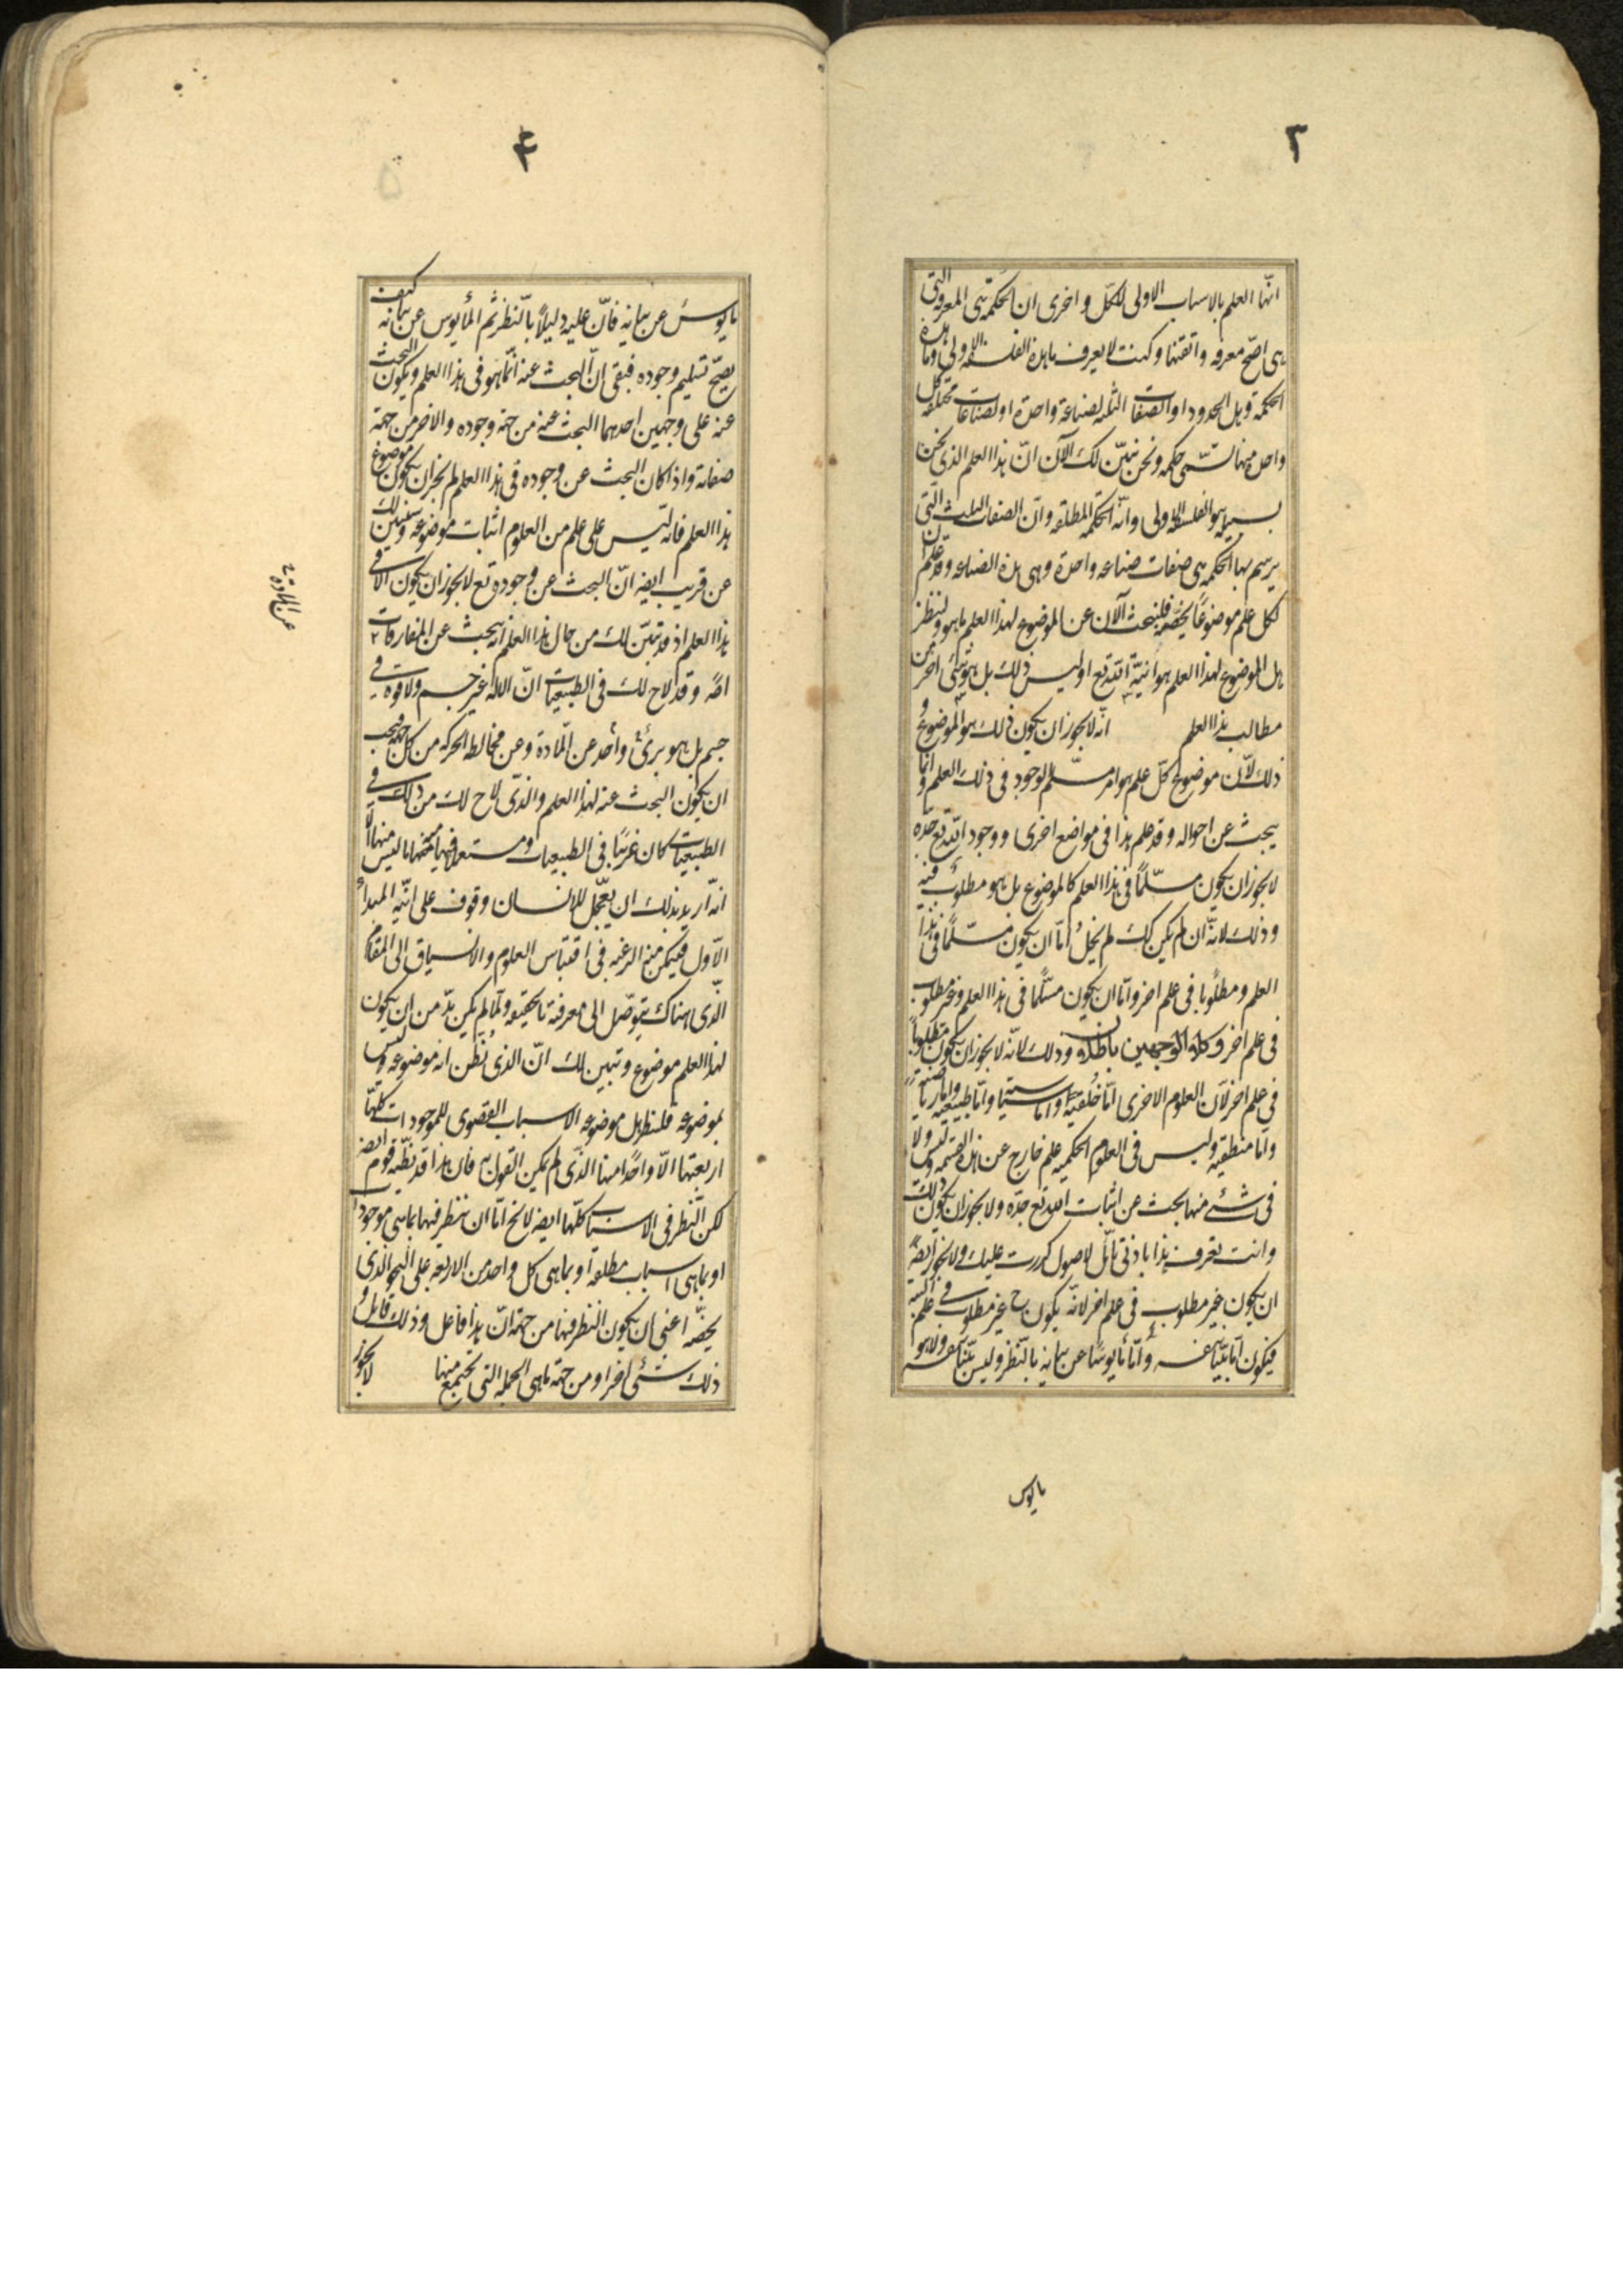 ٣
انّها العلم بالاسباب الاولى للكل و اخرى ان الحكمة هى المعرفة التى
هى اصحّ معرفه واتقنها وكنت لا يعرف ما هذه الفلسفه الاولى وما هذه
الحكمة وهل الحدود او الصفات الثلثه لصناعة واحدة او لصناعات مختلفه كل
واحدة منها تسمّى حكمه ونحن نبيّن لك الآن انّ هذا العلم الذى نحن
بسبيله هو الفلسفه الاولى وانّه الحكمه المطلقه وانّ الصفات الثلث التى
يرسم بها الحكمه هى صفات صناعه واحدة وهى هذه الصناعه وقد علم ان
لكل علم موضوعًا يخصّه فلنبحث الآن عن الموضوع لهذا العلم ما هو ولننظر
هل الموضوع لهذا العلم هو انيّة الله تع او ليس ذلك بل هو شئ اخر من
مطالب هذا العلم انّه لا يجوز ان يكون ذلك هو الموضوع و
ذلك لانّ موضوع كلّ علم هو امر مسلّم الوجود فى ذلك العلم و انما
يبحث عن احواله و قد علم هذا فى مواضع اخرى و وجود الله تع جدّه
لا يجوز ان يكون مسلّمًا فى هذا العلم كالموضوع بل هو مطلوب فيه
وذلك لانّه ان لم يكن كك لم يخل امّا ان يكون مسلّمًا فى هذا
العلم ومطلوبا فى علم اخر وامّا ان يكون مسلّما فى هذا العلم وغير مطلوب
فى علم اخر وكلا الوجهين باطلان وذلك لانّه لا يجوز ان يكون مطلوبا
فى علم اخر لانّ العلوم الاخرى امّا خلقيّة او سياسية وامّا طبيعيّه وامّا رياضية
وامّا منطقيه وليس فى العلوم الحكميه علم خارج عن هذه القسمه وليس ولا
فى شئ منها يبحث عن اثبات الله تع جدّه ولا يجوز ان يكون ذلك
وانت تعرف هذا بادنى تامّل لاصول كررت عليك ولا يجوز ايضًا
ان يكون غير مطلوب فى علم اخر لانّه يكون ح غير مطلوب فى علم البتة
فيكون امّا بيّنا بنفسه وامّا مأيوسًا عن بيانه بالنظر وليس بيّنا بنفسه ولا هو
مايوس
۴
مايوس عن بيانه فانّ عليه دليلاً بالنظر ثم المأيوس عن بيانه كيف
يصحّ تسليم وجوده فبقى انّ البحث عنه انّما هو فى هذا العلم ويكون البحث
عنه على وجهين احدهما البحث عنه من جهة وجوده والاخر من جهة
صفاته واذا كان البحث عن وجوده فى هذا العلم لم يجز ان يكون موضوع
هذا العلم فانه ليس على علم من العلوم اثبات موضوعه وسنبين لك
عن قريب ايضه انّ البحث عن وجوده تع لا يجوز ان يكون الا فى
هذا العلم اذ قد تبيّن لك من حال هذا العلم انه يبحث عن المفارقات
اصًه وقد لاح لك فى الطبيعيات انّ الاله غير جسم ولا قوة فى
جسم بل هو برئ واحد عن المّادة وعن مخالطه الحركه من كل جهة فيجب
ان يكون البحث عنه لهذا العلم والذى لاح لك من ذلك فى
الطبيعيات كان غريبًا فى الطبيعيات ومستعملا فيها منها ما ليس منها الا
انه اريد بذلك ان يعجّل للانسان وقوف على انيّه المبدأ
الاّول فيتمكن منه الرغبه فى اقتباس العلوم والانسياق الى المقام
الذى هناك يتوصّل الى معرفة بالحقيقه ولمّا لم يكن بدّ من ان يكون
لهذا العلم موضوع وتبين لك انّ الذى نُظّن انه موضوعه ليس
بموضوعه فلننظر هل موضوعه الاسباب القصوى للموجودات كلهّا
اربعتها الّا واحدًا منها الذّى لم يمكن القول به فان هذا قد يظّنه قوم ايضه
لكن النّظر فى الاسباب كلّها ايضه لا يخ امّا ان ينظر فيها بما هى موجودات
او بما هى اسباب مطلقه او بما هى كل واحد من الاربعه على النحو الذى
يخصّه اعنى ان يكون النظر فيها من جهة انّ هذا فاعل وذلك قابل و
ذلك شئ اخر او من جهة ما هى الجمله التى تجتمع منها لا يجوز
عن المادة